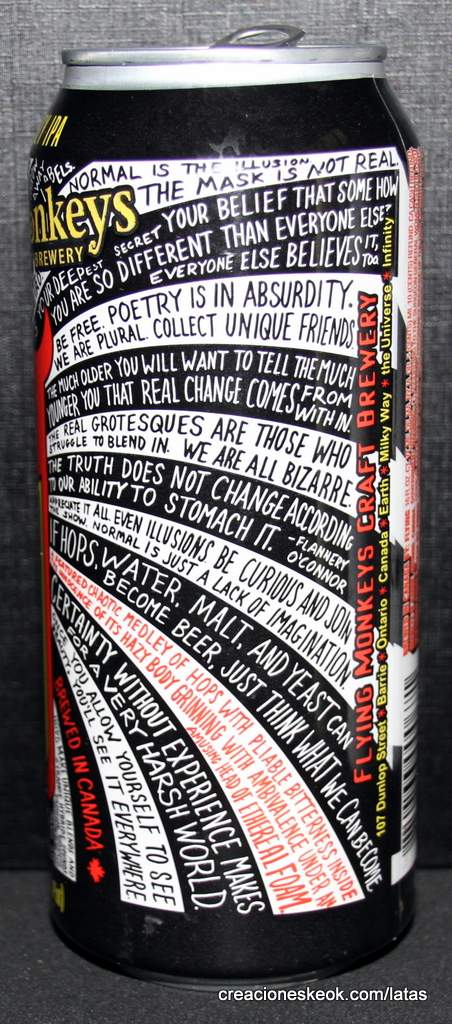 IPA
LABELS.
NORMAL IS THE ILLUSION
NOT REAL.
THE MASK IS
nkeys
BREWERY
YOUR BELIEF THAT SOME HOW
YOUR DEEPEST SECRET
YOU ARE SO DIFFERENT THAN EVERYONE ELSE?
EVERYONE ELSE BELIEVES IT, TOO.
BE FREE. POETRY IS IN ABSURDITY.
WE ARE PLURAL. COLLECT UNIQUE FRIENDS
THE MUCH OLDER YOU WILL WANT TO TELL THE MUCH
YOUNGER YOU THAT REAL CHANGE COMES FROM WITH IN.
THE REAL GROTESQUES ARE THOSE WHO
STRUGGLE TO BLEND IN. WE ARE ALL BIZARRE.
THE TRUTH DOES NOT CHANGE ACCORDING
TO OUR ABILITY TO STOMACH IT. -FLANNERY O'CONNOR
APPRECIATE IT ALL EVEN ILLUSIONS BE CURIOUS AND JOIN
THE SHOW. NORMAL IS JUST A LACK OF IMAGINATION.
IF HOPS, WATER, MALT, AND YEAST CAN
BECOME BEER, JUST THINK WHAT WE CAN BECOME.
FEATURED CHAOTIC MEDLEY OF HOPS WITH PLIABLE BITTERNESS INSIDE
OF ITS HAZY BODY GRINNING WITH AMBIVALENCE UNDER AN
AMUSING HEAD OF ETHEREAL FOAM.
CERTAINTY WITHOUT EXPERIENCE MAKES
FOR A VERY HARSH WORLD.
YOU ALLOW YOURSELF TO SEE
YOU'LL SEE IT EVERYWHERE.
BREWED IN CANADA
FLYING MONKEYS CRAFT BREWERY
107 Dunlop Street * Barrie * Ontario * Canada * Earth * Milky Way * the Universe * Infinity
creacioneskeok.com/latas